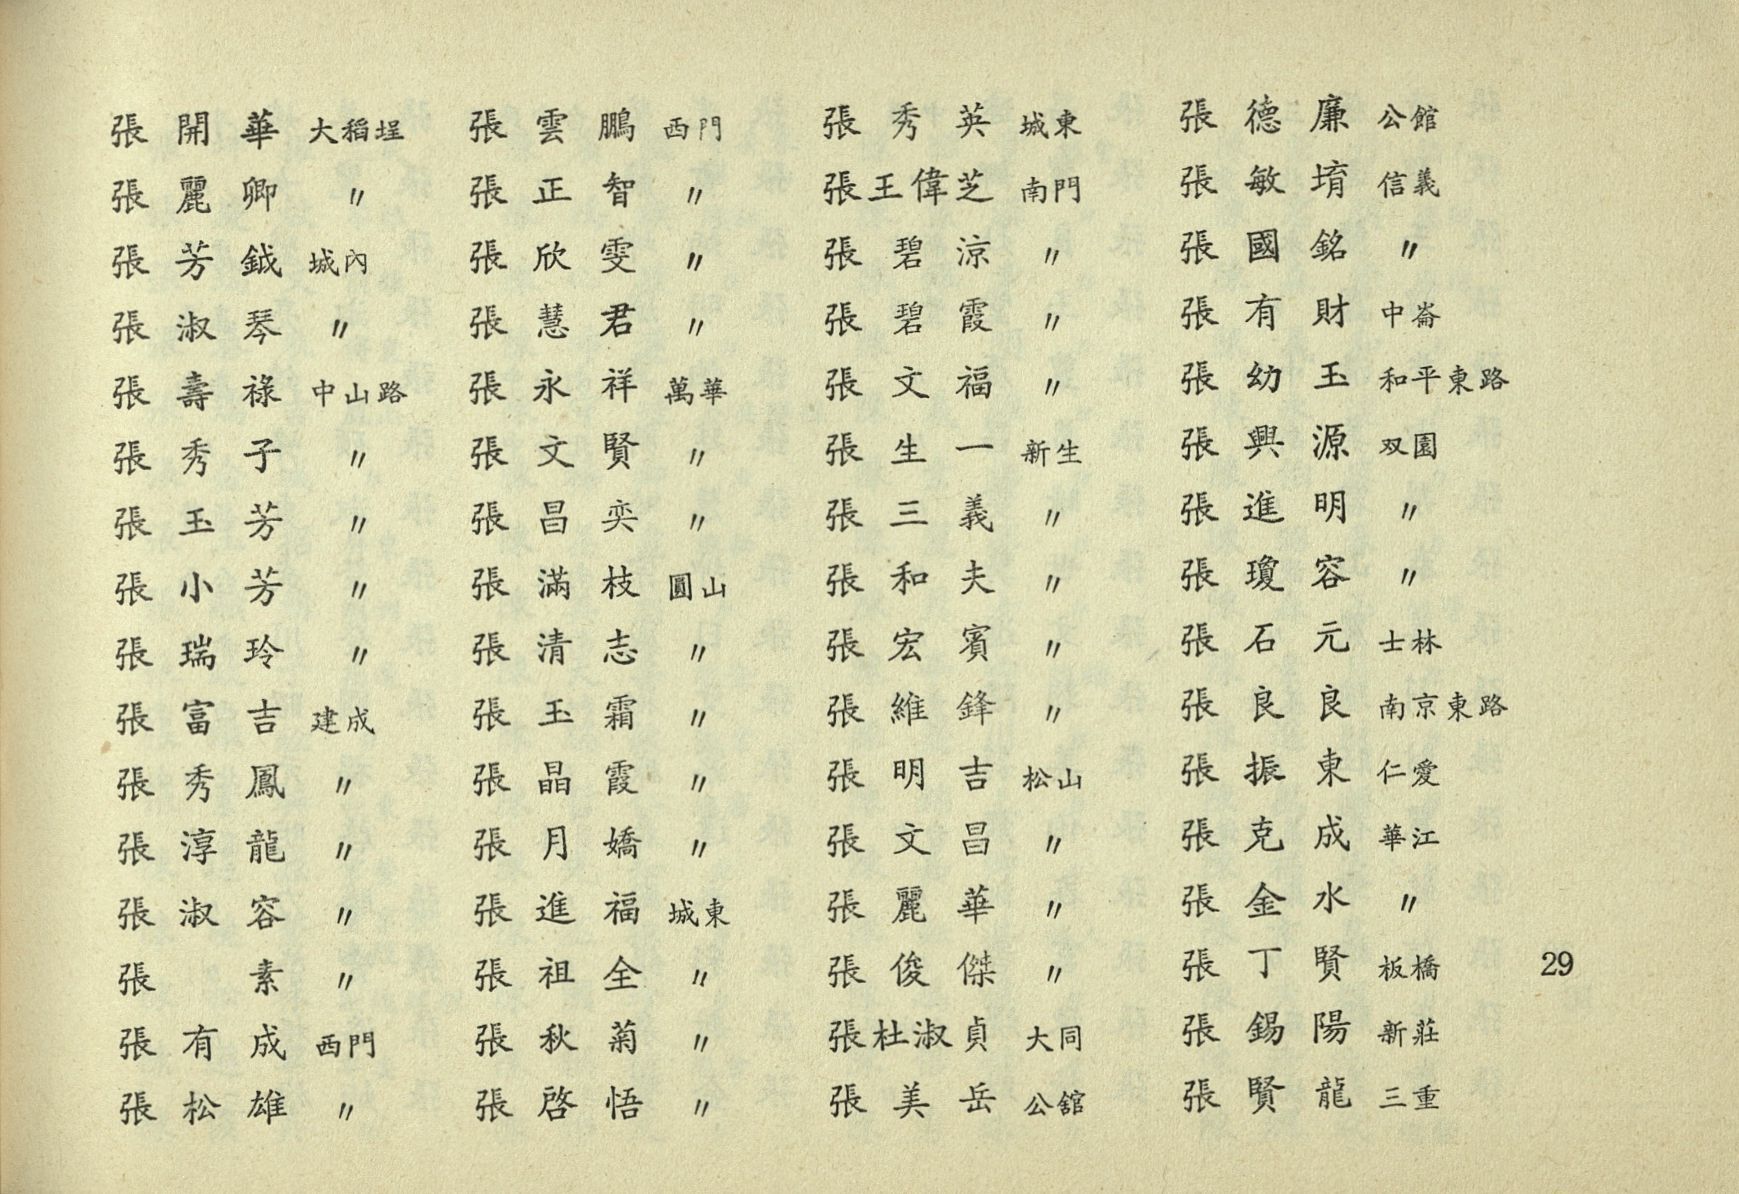 張開華 大稻埕
張麗卿 〃
張芳鉞 城內
張淑琴 〃
張壽祿 中山路
張秀子 〃
張玉芳 〃
張小芳 〃
張瑞玲 〃
張富吉 建成
張秀鳳 〃
張淳龍 〃
張淑容 〃
張素 〃
張有成 西門
張松雄 〃
張雲鵬 西門
張正智 〃
張欣雯 〃
張慧君 〃
張永祥 萬華
張文賢 〃
張昌奕 〃
張滿枝 圓山
張清志 〃
張玉霜 〃
張晶霞 〃
張月嬌 〃
張進福 城東
張祖全 〃
張秋菊 〃
張啓悟 〃
張秀英 城東
張王偉芝 南門
張碧涼 〃
張碧霞 〃
張文福 〃
張生一 新生
張三義 〃
張和夫 〃
張宏賓 〃
張維鋒 〃
張明吉 松山
張文昌 〃
張麗華 〃
張俊傑 〃
張杜淑貞 大同
張美岳 公舘
張德廉 公館
張敏堉 信義
張國銘 〃
張有財 中崙
張幼玉 和平東路
張興源 双園
張進明 〃
張瓊容 〃
張石元 士林
張良良 南京東路
張振東 仁愛
張克成 華江
張金水 〃
張丁賢 板橋
張錫陽 新莊
張賢龍 三重
29